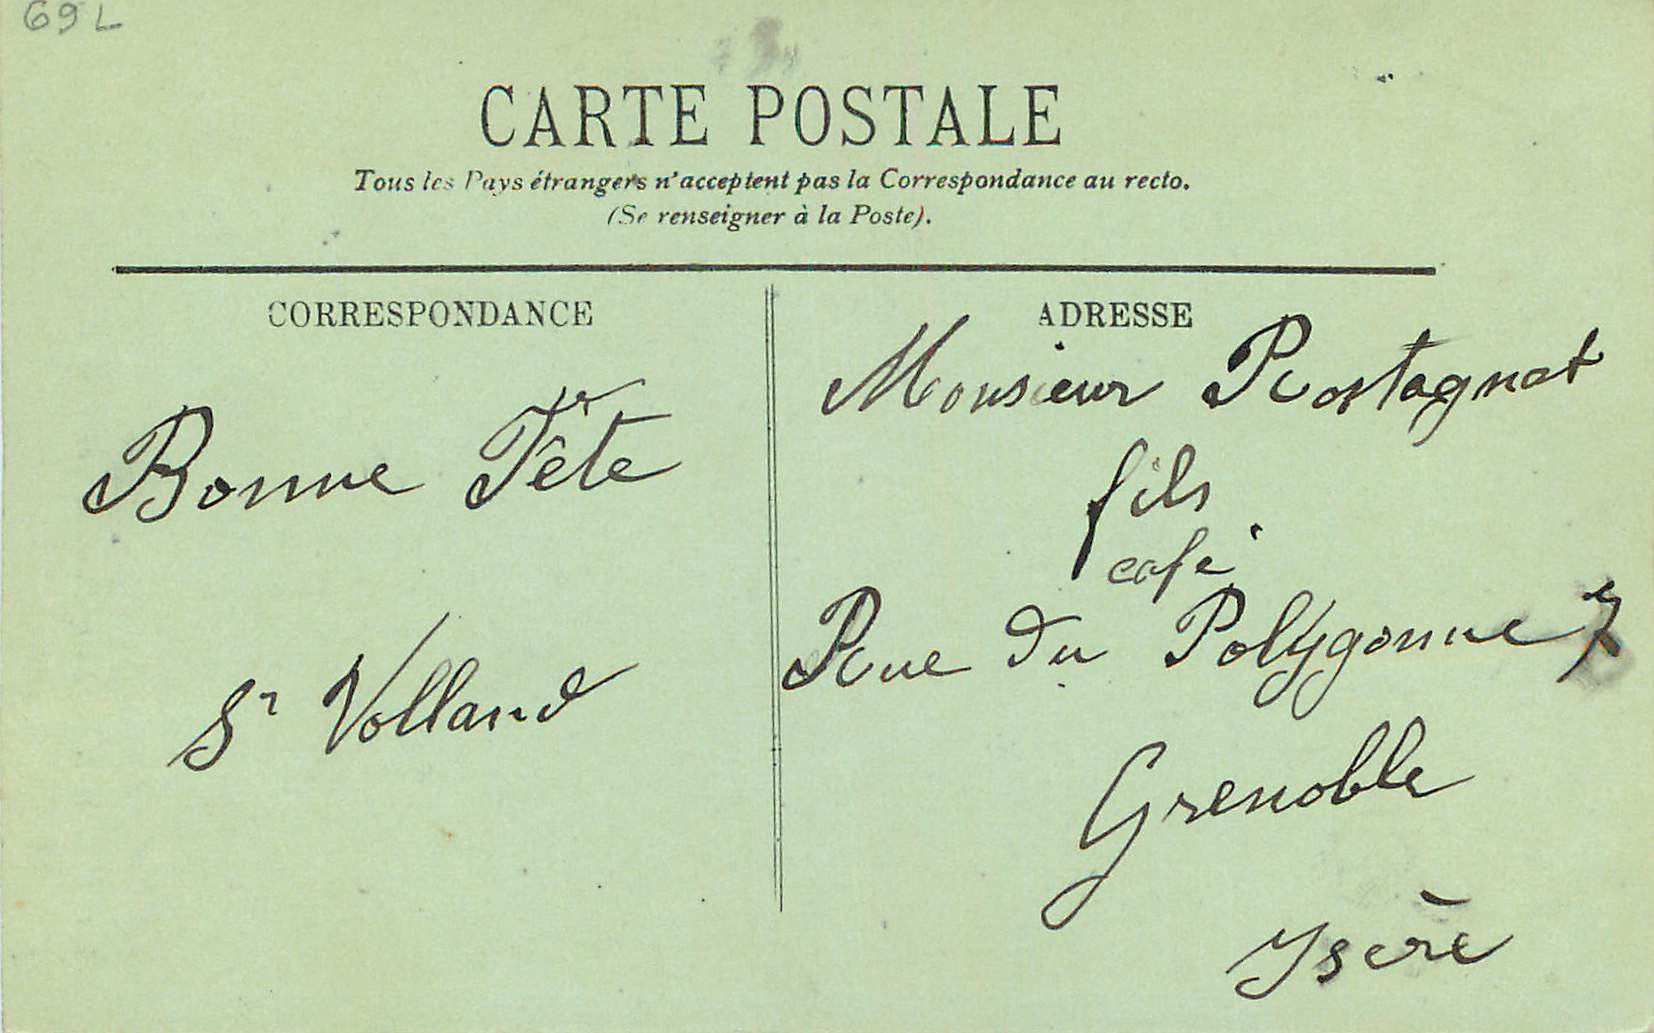 69 L
CARTE POSTALE
Tous les Pays étrangers n'acceptent pas la Correspondance au recto.
(Se renseigner à la Poste).
CORRESPONDANCE
Bonne Fête
Sr Volland
ADRESSE
Monsieur Rostagnat
fils
café
Rue du Polygonne 7
Grenoble
Isère